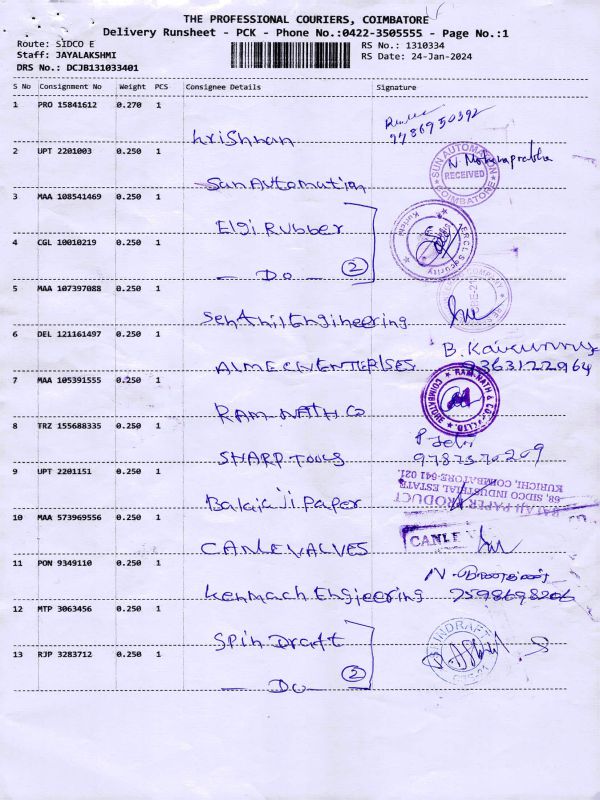 THE PROFESSIONAL COURIERS, COIMBATORE
Delivery Runsheet - PCK - Phone No.:0422-3505555 - Page No.:1
Route: SIDCO E
Staff: JAYALAKSHMI
DRS No.: DCJB131033401
RS No.: 1310334
RS Date: 24-Jan-2024
S No Consignment No Weight PCS Consignee Details Signature
1 PRO 15841612 0.270 1
Krishnan 9786950392
2 UPT 2201003 0.250 1
Sun Automation
SUN AUTOMATION RECEIVED COIMBATORE
N. Mohanaprabha
3 MAA 108541469 0.250 1
Elgi Rubber
4 CGL 10010219 0.250 1
— Do — 2
Security Kurichi
5 MAA 107397088 0.250 1
Senthil Engineering
COMPANY
6 DEL 121161497 0.250 1
ALMECH ENTERPISES
B. 9363122964
7 MAA 105391555 0.250 1
RAM NATH CO
RAM-NATH & CO. P. LTD. COIMBATORE
8 TRZ 155688335 0.250 1
SHARP TOOLS
9 UPT 2201151 0.250 1
Balaji Paper
BALAJI PAPER PRODUCT
68, SIDCO INDUSTRIAL ESTATE
KURICHI, COIMBATORE-641 021.
10 MAA 573969556 0.250 1
CANLE VALVES
CANLE
11 PON 9349110 0.250 1
Kenmach Engieering 7598698206
12 MTP 3063456 0.250 1
Spin Draft
13 RJP 3283712 0.250 1
— Do — 2
SPINDRAFT